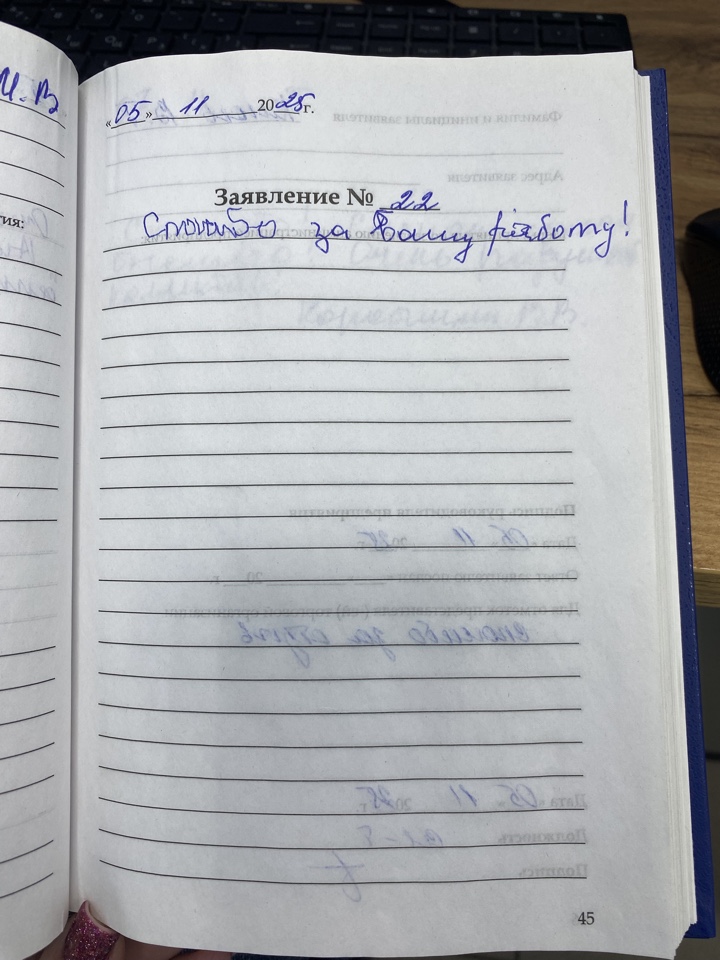 И. В.
тия:
«05» 11 2025 г.
Заявление № 22
Спасибо за Вашу работу!
45